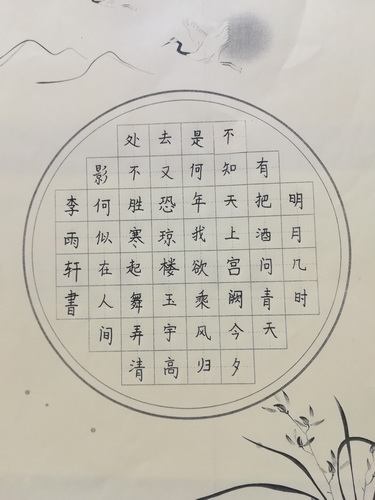 明月几时
有把酒问青天
不知天上宫阙今夕
是何年我欲乘风归
去又恐琼楼玉宇高
处不胜寒起舞弄清
影何似在人间
李雨轩書